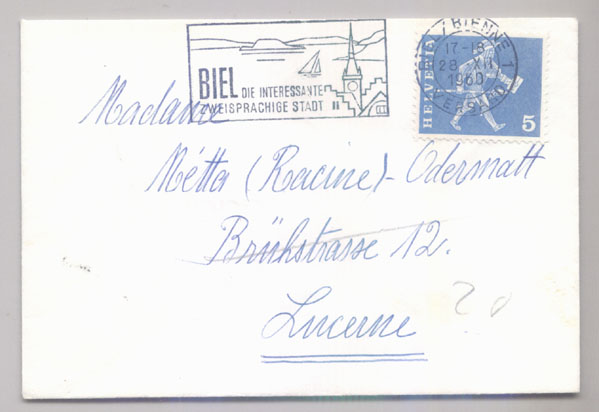 BIEL DIE INTERESSANTE
ZWEISPRACHIGE STADT
BIENNE 1
17-18
28 XII
1960
VERSAND
HELVETIA
5
Madame
Métta (Racine)-Odermatt
Brühstrasse 12.
Lucerne